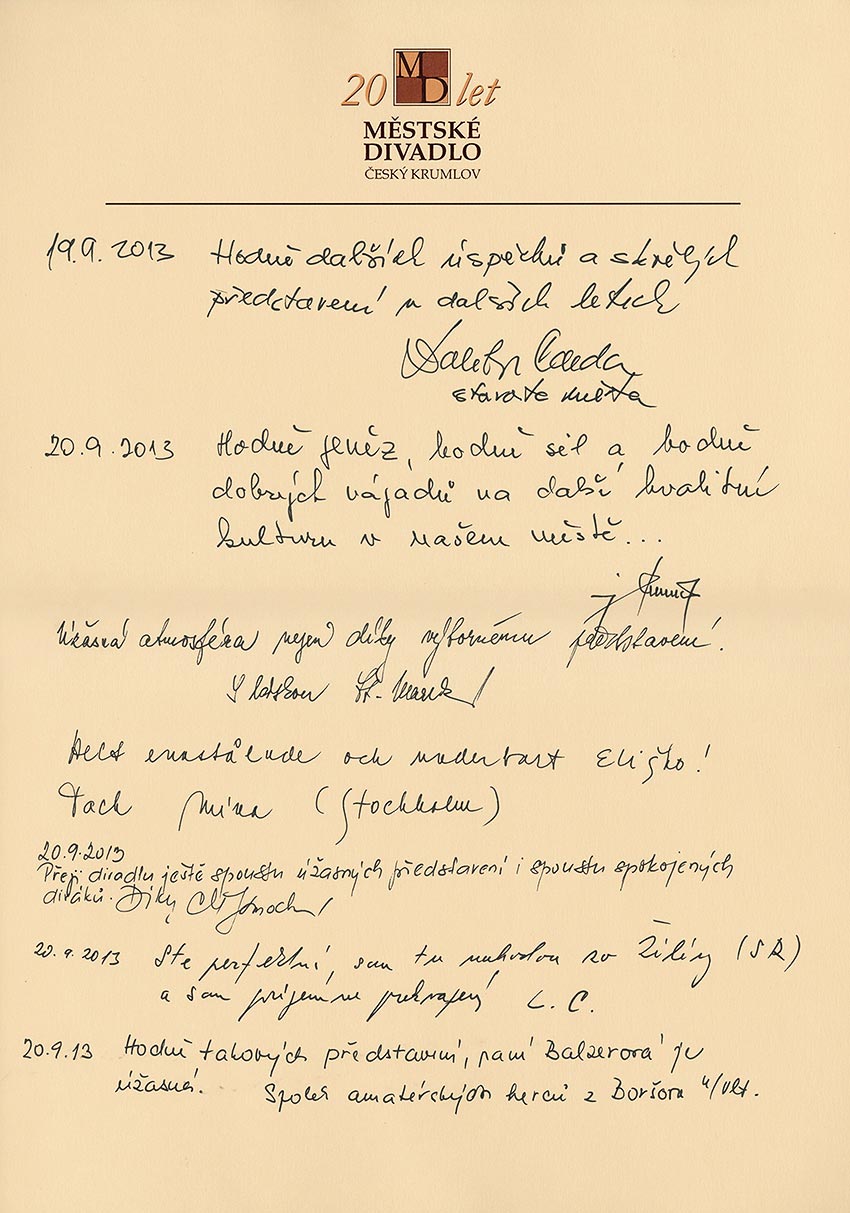 20 MD let
MĚSTSKÉ
DIVADLO
ČESKÝ KRUMLOV
19.9.2013 Hodně dalších úspěchů a skvělých
představení v dalších letech
Dalibor Carda
starosta města
20.9.2013 Hodně peněz, hodně sil a hodně
dobrých nápadů na další kvalitní
kulturu v našem městě...
Úžasná atmosféra nejen díky výbornému představení.
S láskou
Helt enastående och underbart Eliško!
Tack (Stockholm)
20.9.2013
Přeji divadlu ještě spoustu úžasných představení i spoustu spokojených
diváků. Díky
20.9.2013 Ste perfektní, som tu náhodou zo Žiliny (SR)
a som príjemne prekvapený L. C.
20.9.13 Hodně takových představení, paní Balzerová je
úžasná. Spolek amatérských herců z Boršova n/Vlt.